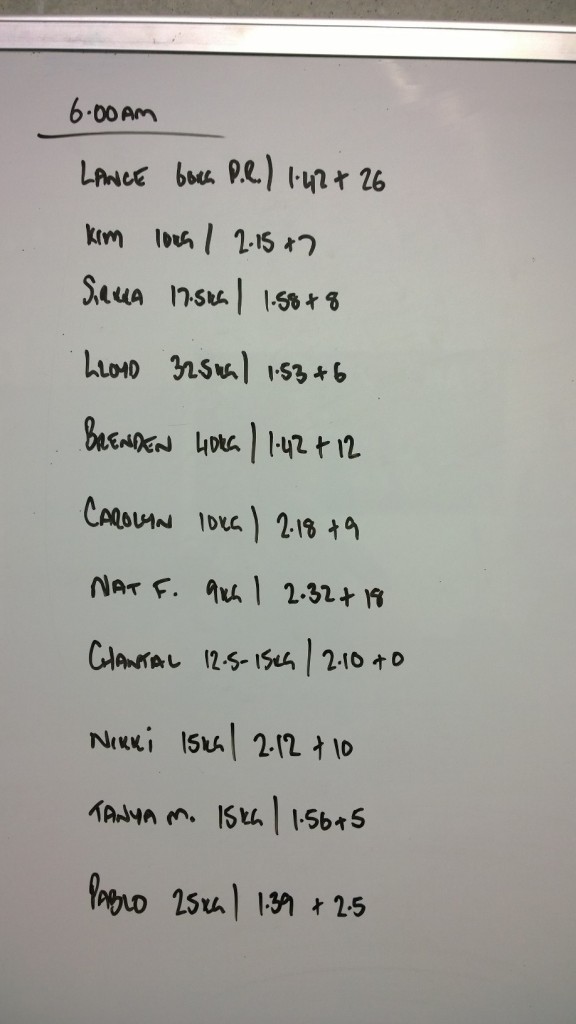 6.00AM
LANCE 60KG P.R.| 1.42 + 26
KIM 10KG | 2.15 +7
17.5KG | 1.58 + 8
LLOYD 32.5KG | 1.53 + 6
BRENDEN 40KG | 1.42 + 12
CAROLYN 10KG | 2.18 +9
NAT F. 9KG | 2.32 + 18
CHANTAL 12.5-15KG | 2.10 +0
NIKKI 15KG | 2.12 + 10
TANYA M. 15KG | 1.56+5
PABLO 25KG | 1.39 + 2.5